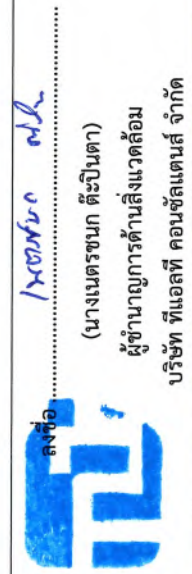 ลงชื่อ
(นางเนตรชนก ต๊ะปินตา)
ผู้ชำนาญการด้านสิ่งแวดล้อม
บริษัท ทีแอลที คอนซัลแตนส์ จำกัด